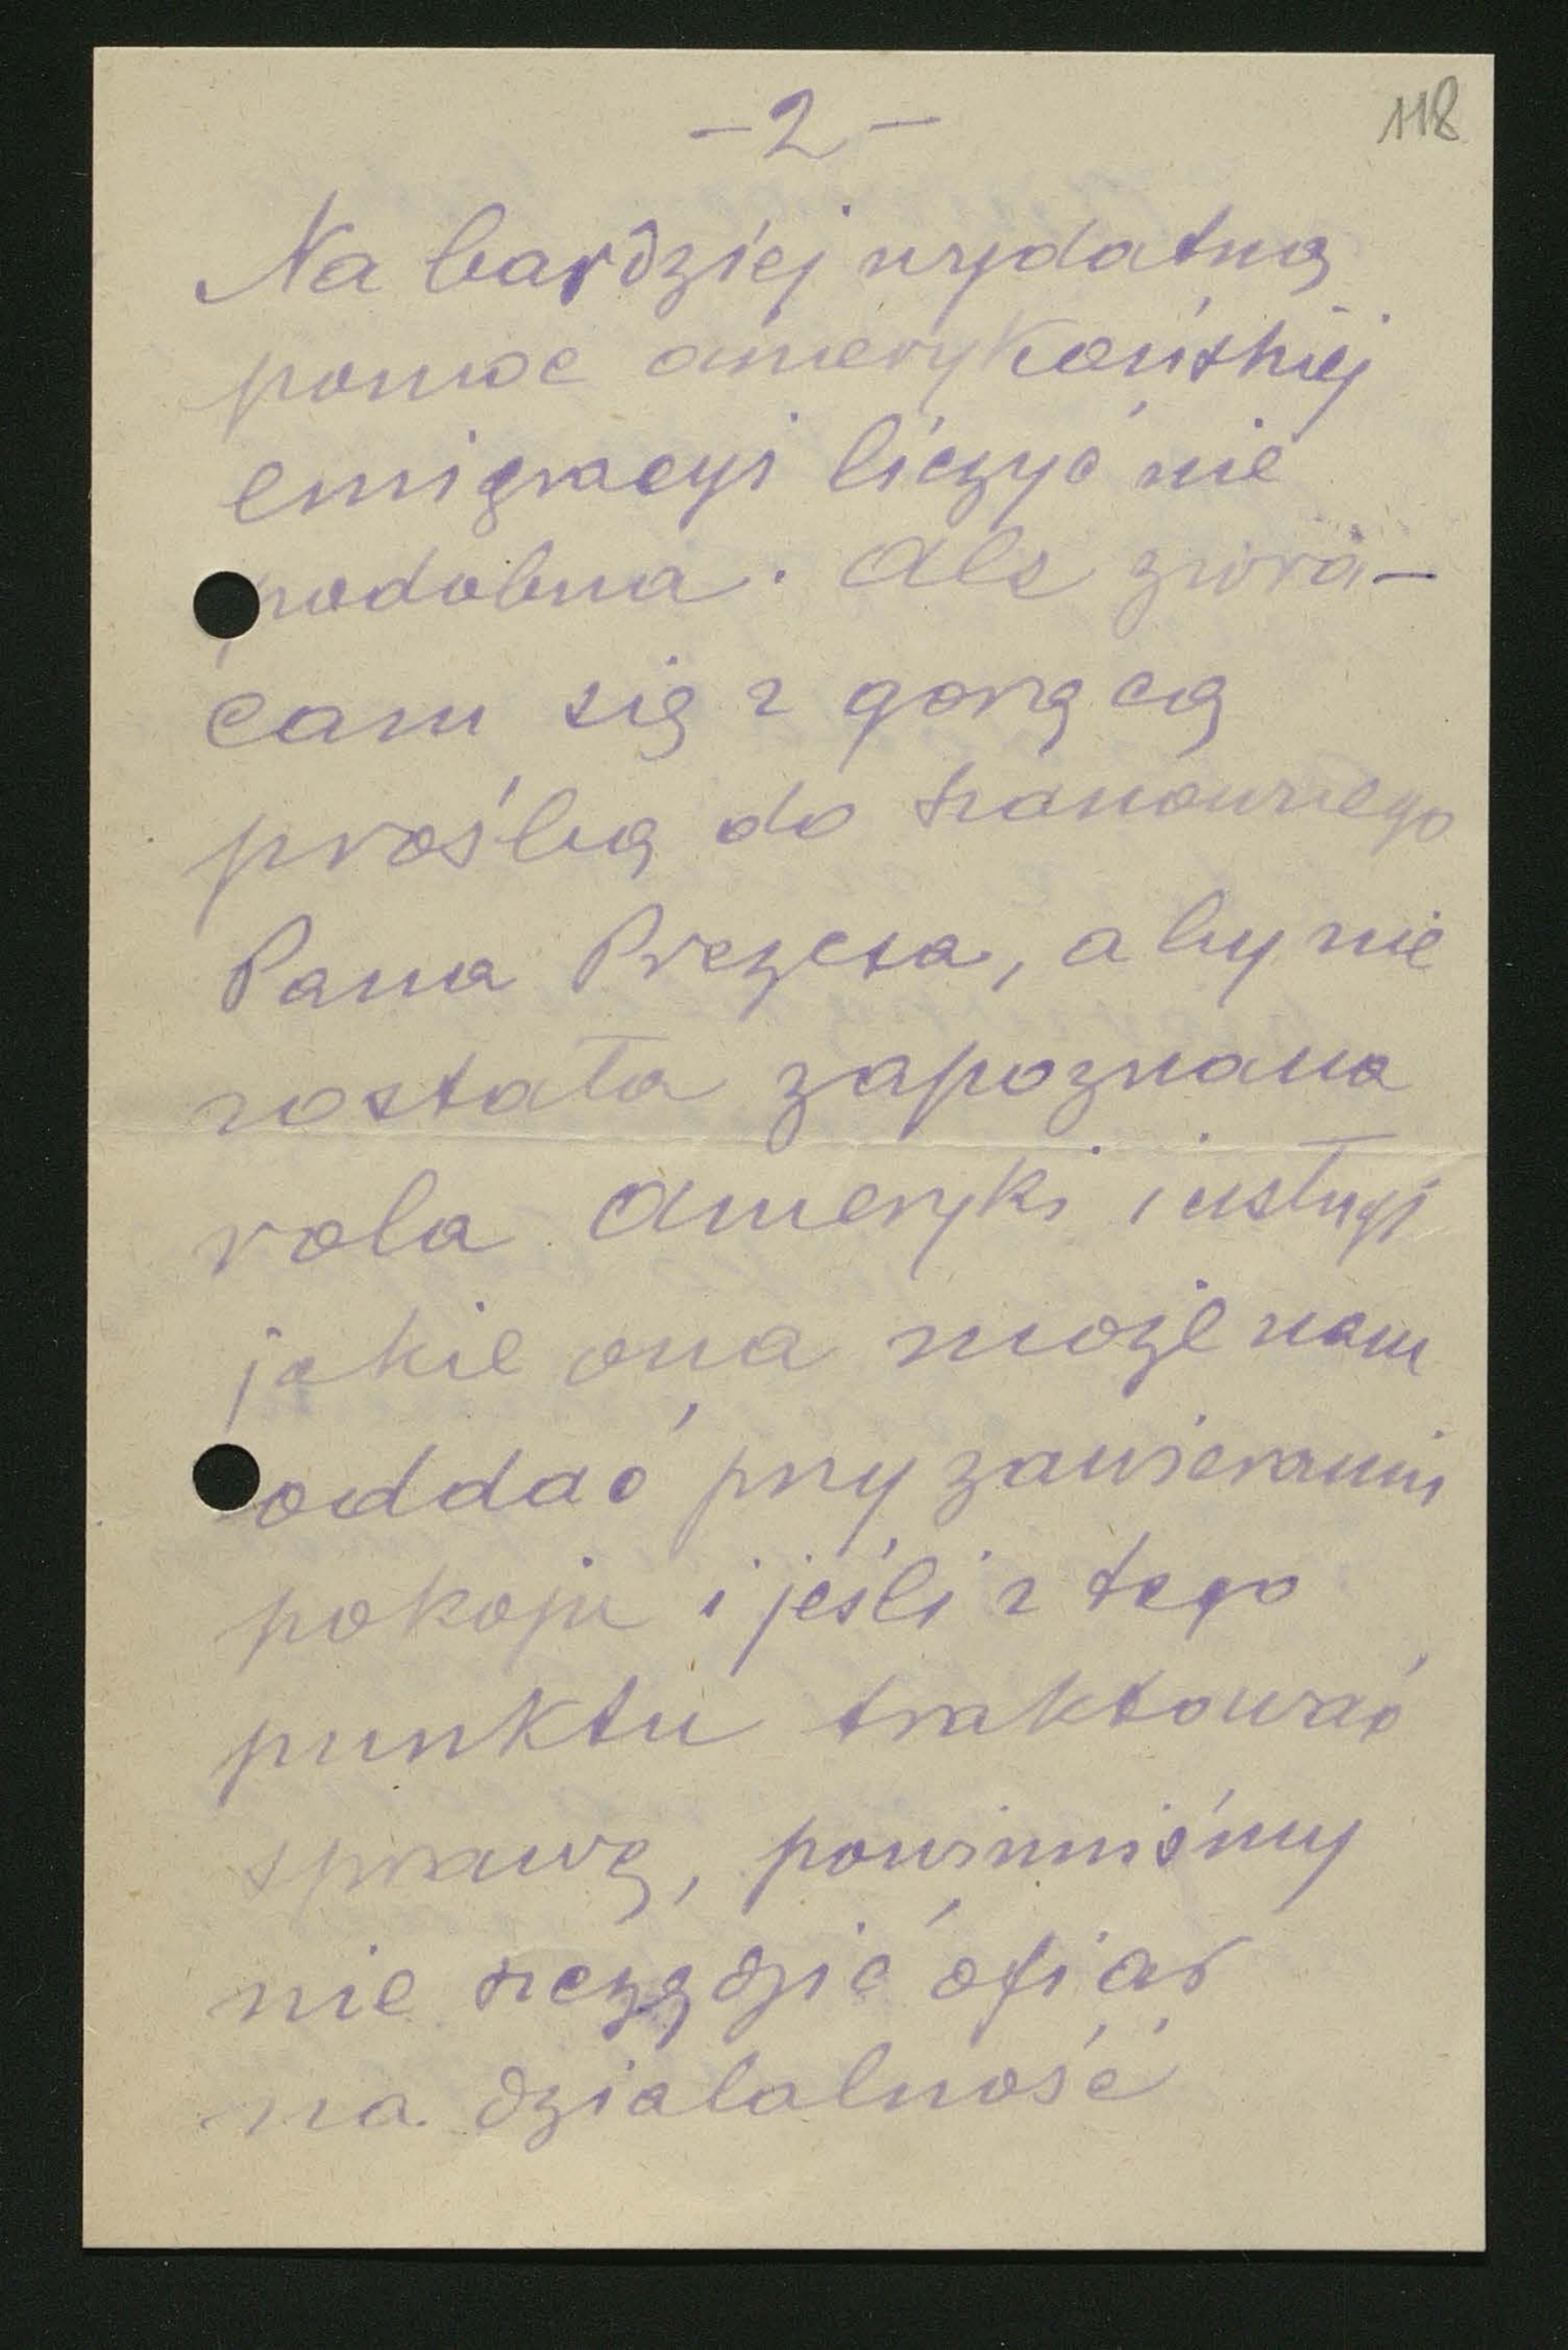 118
- 2 -
Na bardziej wydatną
pomoc amerykańskiej
emigracyi liczyć nie
podobna. Ale zwra-
cam się z gorącą
prośbą do szanownego
Pana Prezesa, aby nie
została zapoznana
rola Ameryki i usługi
jakie ona może nam
oddać przy zawieraniu
pokoju i jeśli z tego
punktu traktować
sprawę, powinniśmy
nie szczędzić ofiar
na działalność